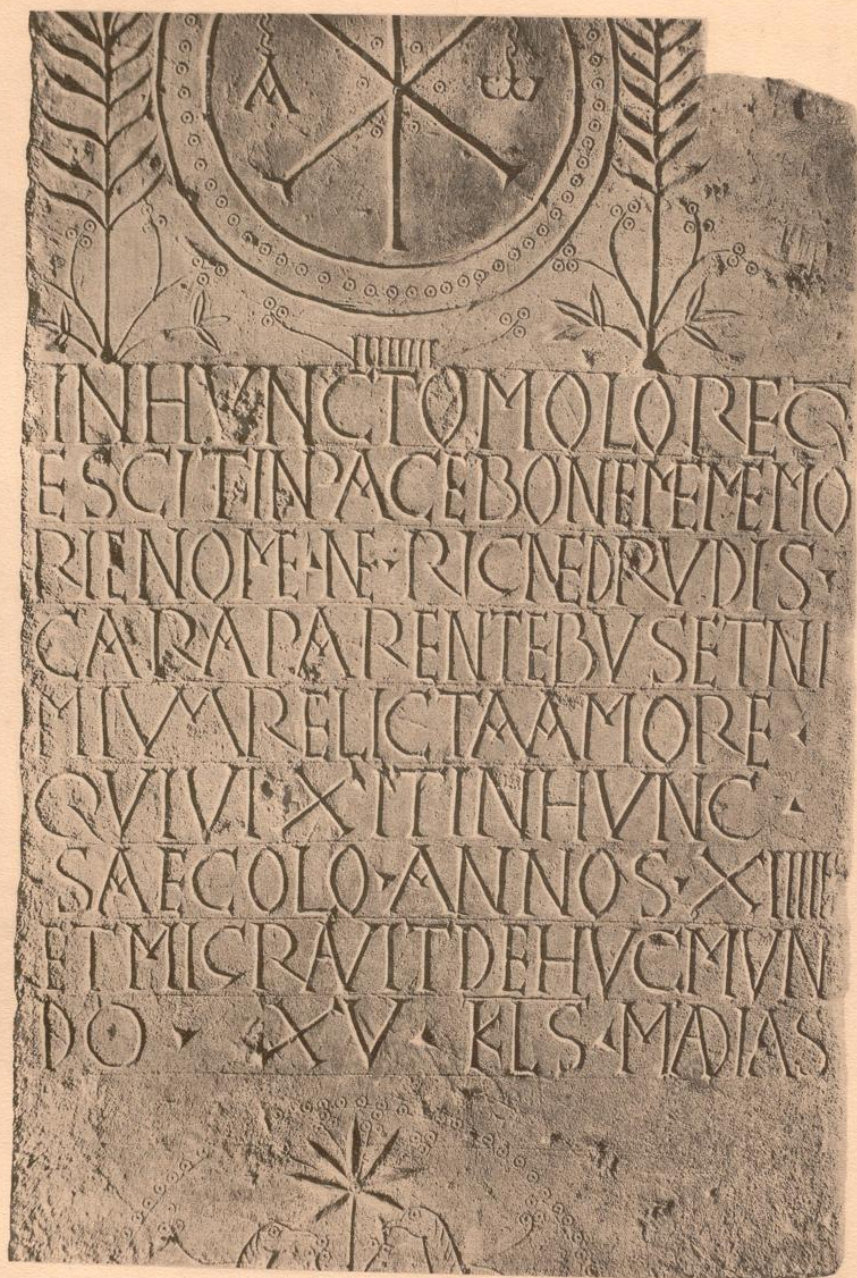 A ω
INHVNCTOMOLOREQ
ESCITINPACEBONEMEMEMO
RIENOME·NE·RICNEDRVDIS·
CARAPARENTEBVSETNI
MIVMRELICTAAMORE·
QVIVIXITINHVNC·
SAECOLO·ANNOS·XIIIII
ETMIGRAVITDEHVCMVN
DO·XV·KLS·MADIAS